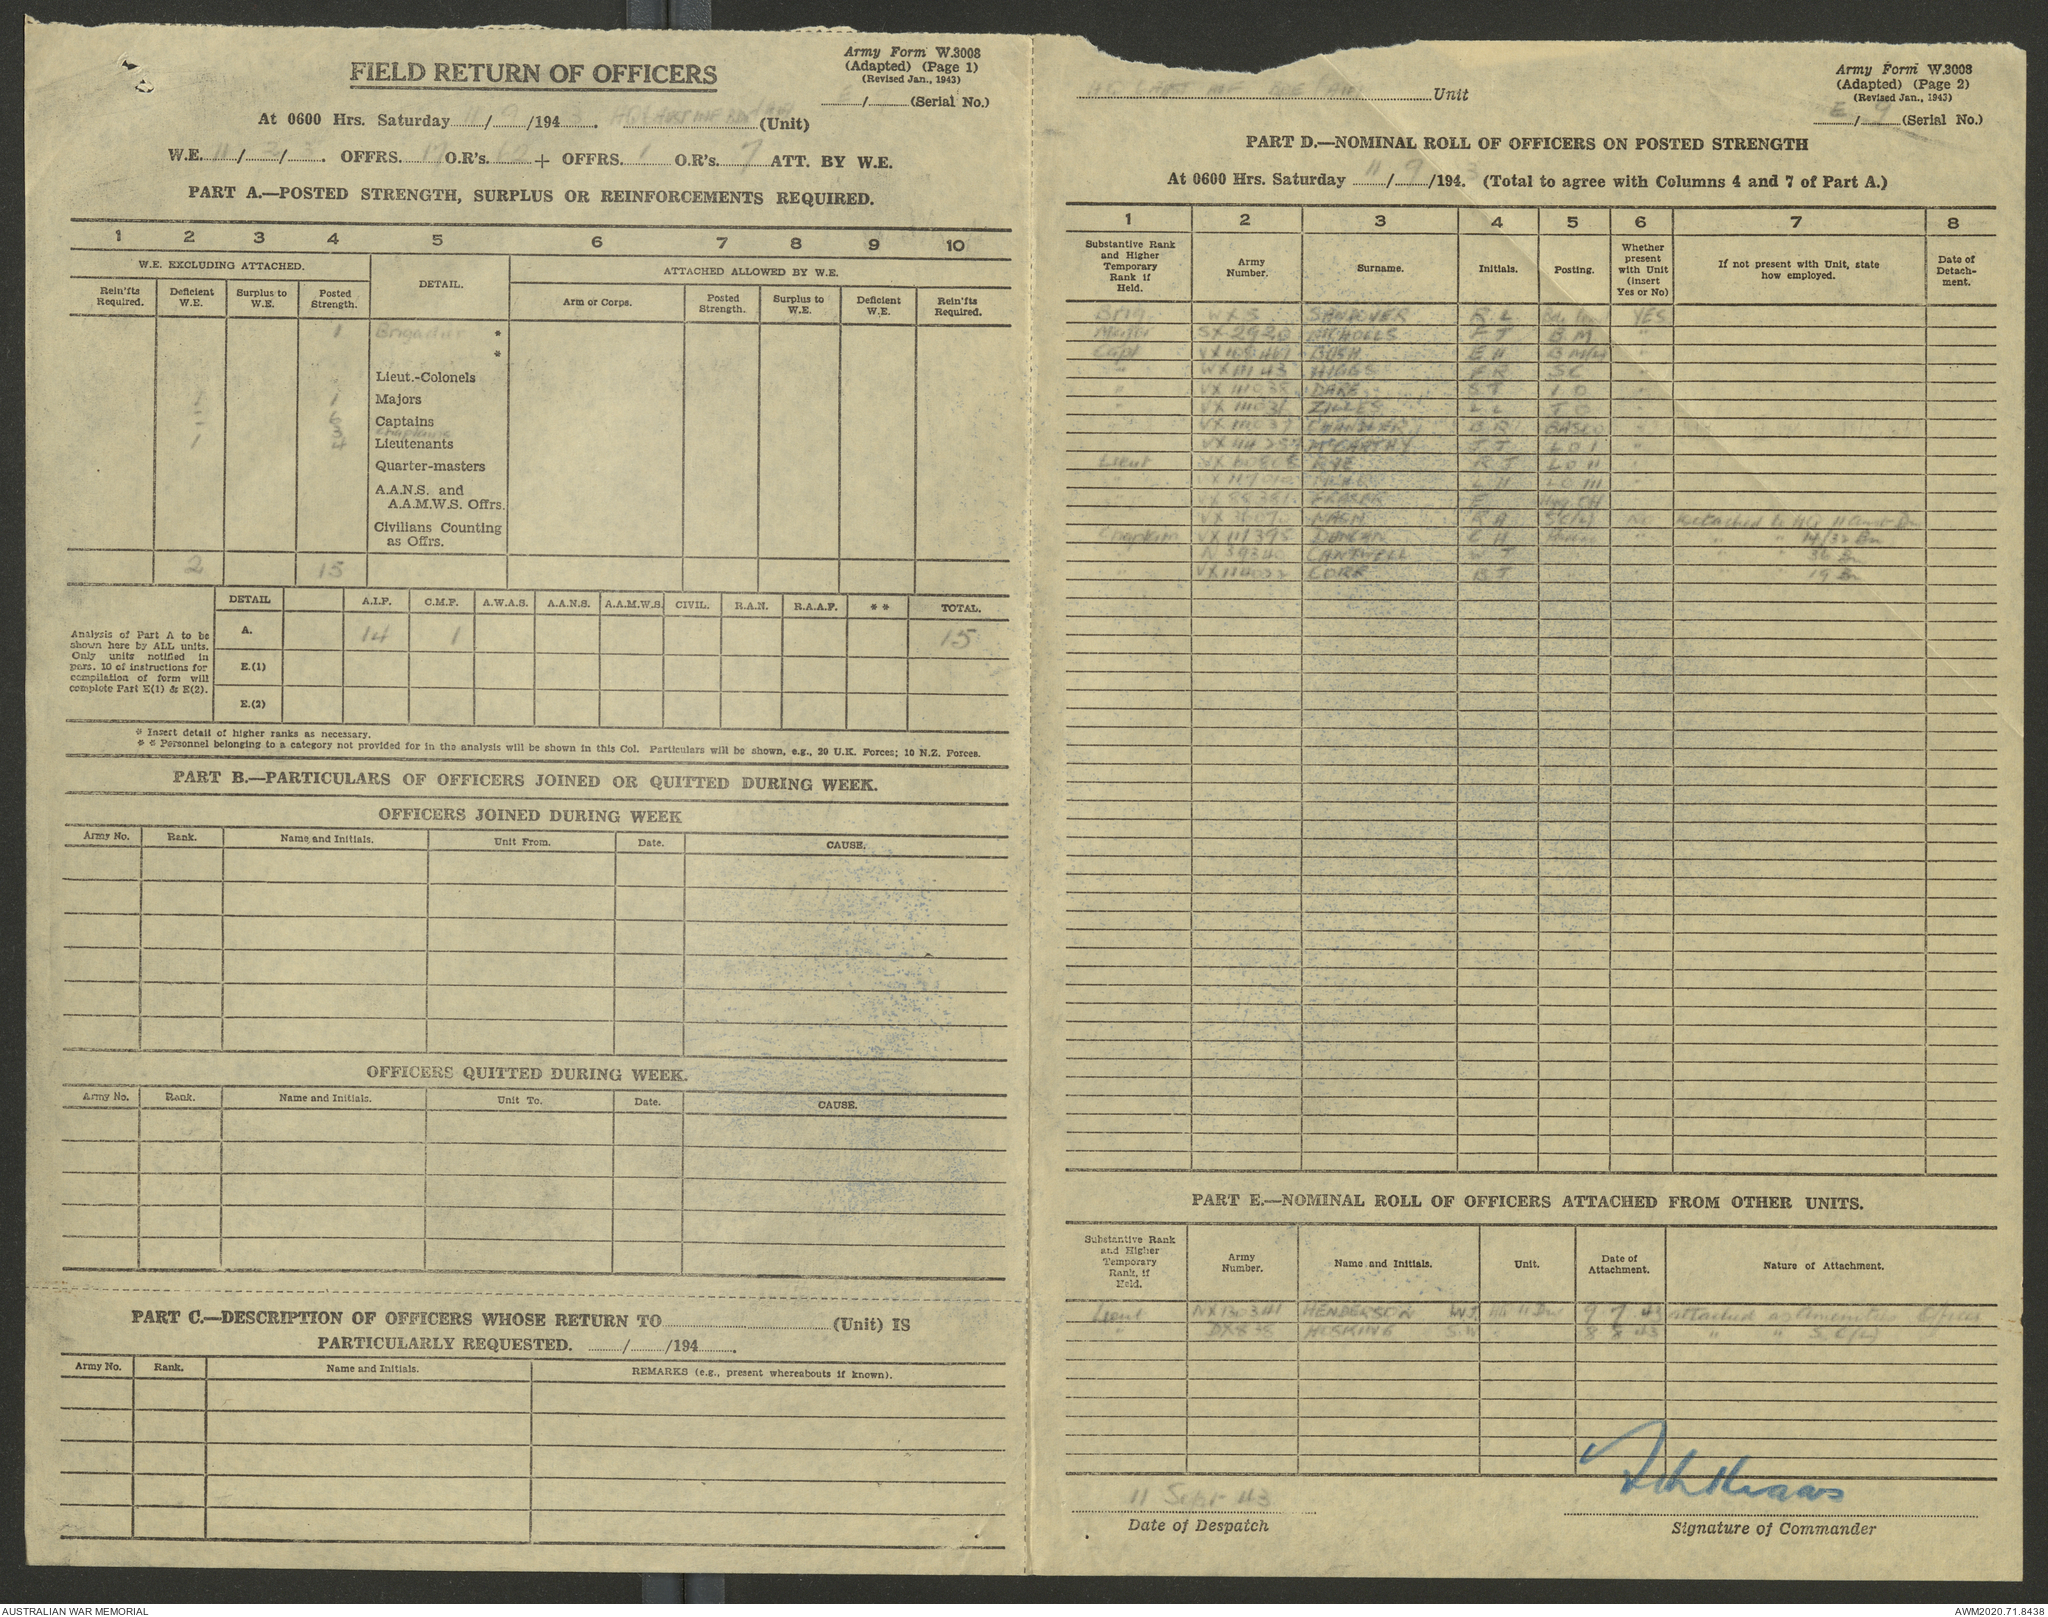 Army Form W.3008
(Adapted) (Page 1)
(Revised Jan., 1943)
FIELD RETURN OF OFFICERS
E / (Serial No.)
At 0600 Hrs. Saturday 11/9/1943. (Unit)
W.E. 11/ / . OFFRS. 17 O.R's. + OFFRS. 1 O.R's. 7 ATT. BY W.E.
PART A.—POSTED STRENGTH, SURPLUS OR REINFORCEMENTS REQUIRED.
1 2 3 4 5 6 7 8 9 10
W.E. EXCLUDING ATTACHED. DETAIL. ATTACHED ALLOWED BY W.E.
Rein'fts Required. Deficient W.E. Surplus to W.E. Posted Strength. Arm or Corps. Posted Strength. Surplus to W.E. Deficient W.E. Rein'fts Required.
1 Brigadier *
*
Lieut.-Colonels
1 Majors
Captains
Chaplains
1 4 Lieutenants
Quarter-masters
A.A.N.S. and
A.A.M.W.S. Offrs.
Civilians Counting
as Offrs.
2 15
DETAIL A.I.F. C.M.F. A.W.A.S. A.A.N.S. A.A.M.W.S. CIVIL. R.A.N. R.A.A.F. * * TOTAL.
A. 14 1 15
E.(1)
E.(2)
Analysis of Part A to be
shown here by ALL units.
Only units notified in
para. 10 of instructions for
compilation of form will
complete Part E(1) & E(2).
* Insert detail of higher ranks as necessary.
* * Personnel belonging to a category not provided for in the analysis will be shown in this Col. Particulars will be shown, e.g., 20 U.K. Forces; 10 N.Z. Forces.
PART B.—PARTICULARS OF OFFICERS JOINED OR QUITTED DURING WEEK.
OFFICERS JOINED DURING WEEK
Army No. Rank. Name and Initials. Unit From. Date. CAUSE.
OFFICERS QUITTED DURING WEEK.
Army No. Rank. Name and Initials. Unit To. Date. CAUSE.
PART C.—DESCRIPTION OF OFFICERS WHOSE RETURN TO (Unit) IS
PARTICULARLY REQUESTED. / /194 .
Army No. Rank. Name and Initials. REMARKS (e.g., present whereabouts if known).
Unit
Army Form W.3008
(Adapted) (Page 2)
(Revised Jan., 1943)
E / 9 (Serial No.)
PART D.—NOMINAL ROLL OF OFFICERS ON POSTED STRENGTH
At 0600 Hrs. Saturday 11/9/1943. (Total to agree with Columns 4 and 7 of Part A.)
1 2 3 4 5 6 7 8
Substantive Rank and Higher Temporary Rank if Held. Army Number. Surname. Initials. Posting. Whether present with Unit (insert Yes or No) If not present with Unit, state how employed. Date of Detachment.
Brig WX 5 SANDOVER R L YES
Major SX 2920 NICHOLLS F J B M "
Capt BUSH E H "
" VX 111143 HIGGS F R S C "
" VX 111035 DARE S T I O "
" ZILLES L L "
" CHANDLER B R BASCO "
McCARTHY J J LO I "
Lieut RYE R J LO II "
L H LO III
FRASER F
NASH R A Attached to HQ 11
Chaplain VX 111395 DUNCAN C H " " " 14/32 Bn
N 39340 CANTWELL W J " " 36 Bn
CORR B J " " 19 Bn
PART E.—NOMINAL ROLL OF OFFICERS ATTACHED FROM OTHER UNITS.
Substantive Rank and Higher Temporary Rank, if Held. Army Number. Name and Initials. Unit. Date of Attachment. Nature of Attachment.
Lieut NX130341 HENDERSON W J HQ 11 Div 9 7 43 attached as Amenities Officer
" HOSKING S W 8 8 43 " " S.C.(L)
11 Sept 43
Date of Despatch
Signature of Commander
AUSTRALIAN WAR MEMORIAL
AWM2020.71.8438